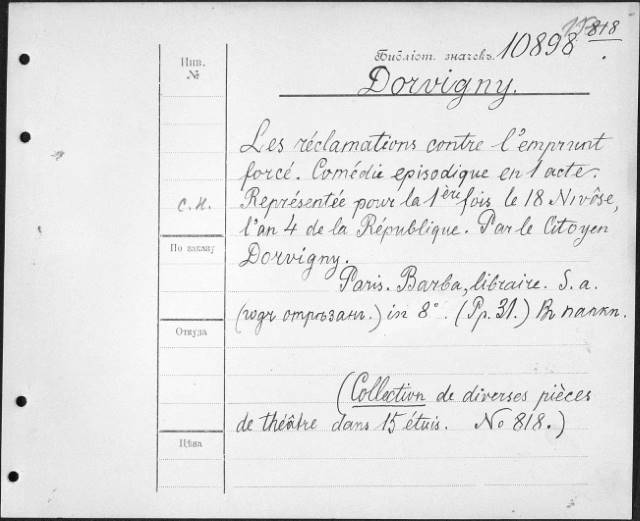 818
Инв.
№
Библіот. значекъ. 10898
Dorvigny.
Les réclamations contre l'emprunt
forcé. Comédie episodique en 1 acte.
C.H.
Représentée pour la 1ère fois le 18 Nivôse,
l'an 4 de la République. Par le Citoyen
По заказу
Dorvigny.
Paris. Barba, libraire. S. a.
(годъ отрѣзанъ.) in 8°. (Pp. 31.) Въ папкѣ.
Откуда
(Collection de diverses pièces
de théâtre dans 15 étuis. No 818.)
Цѣна